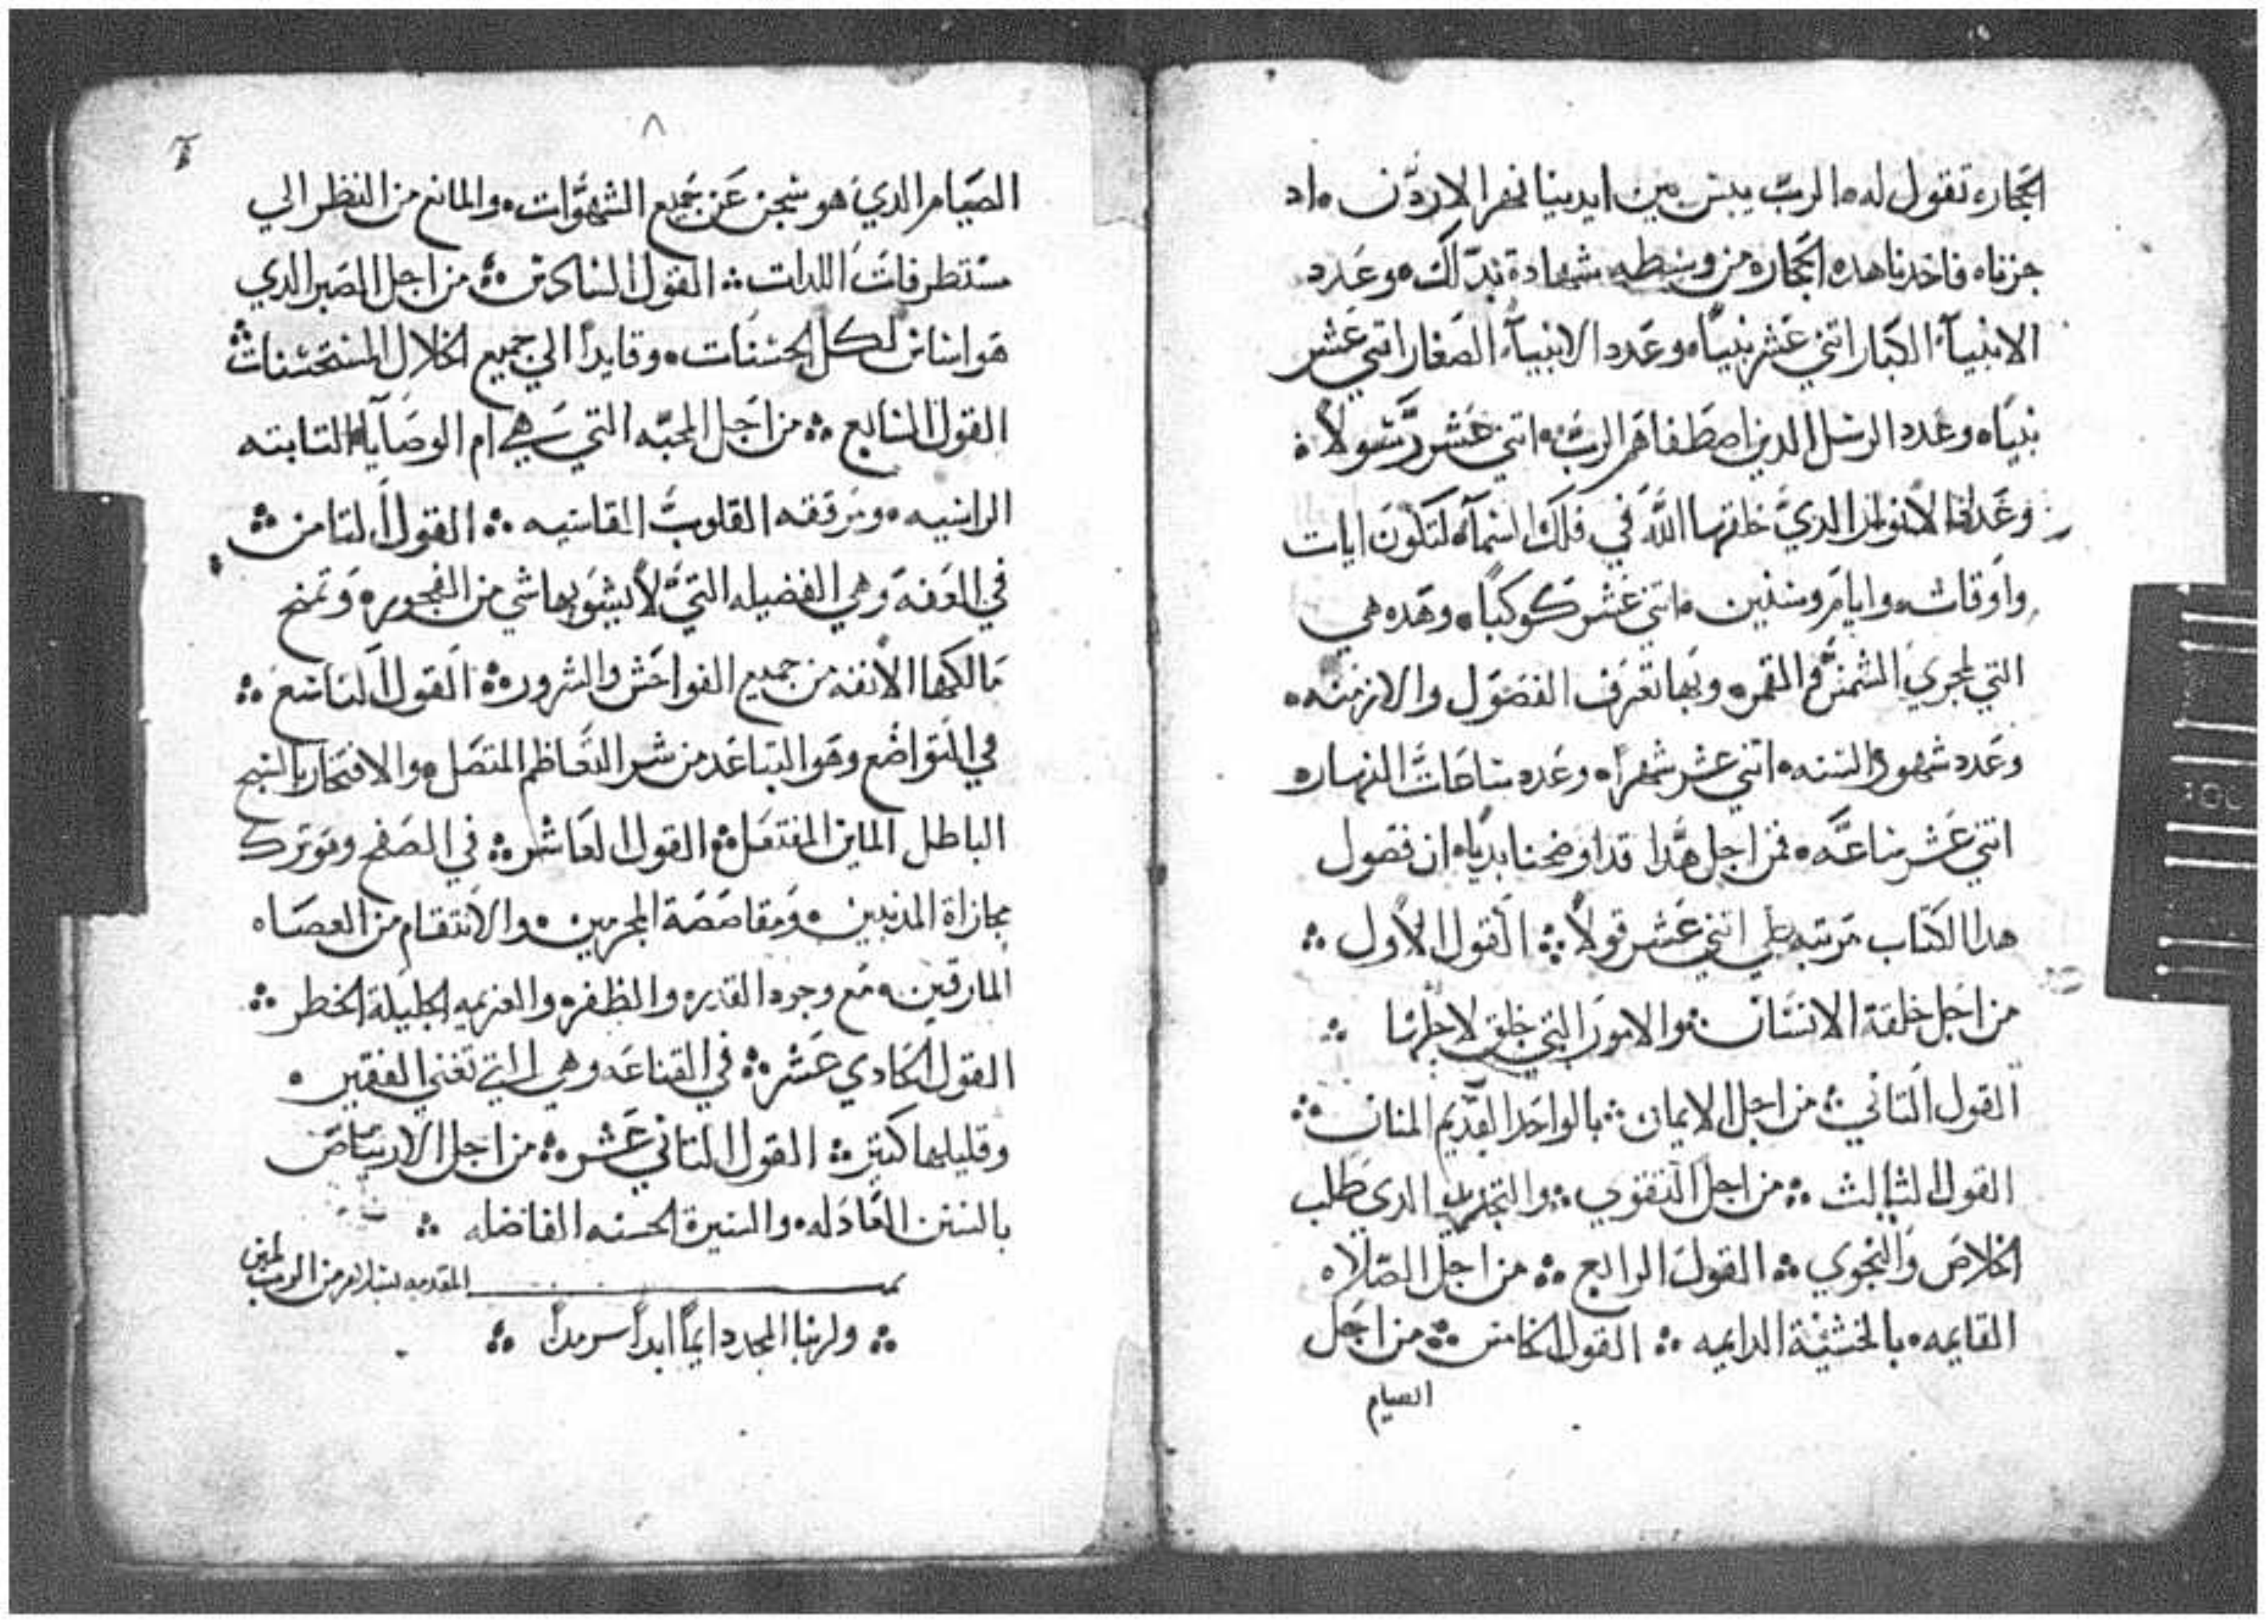 الحجاره تقول له الرب يبس بين ايدينا نهر الاردن اد
جزناه فاخدنا هده الحجاره من وسطه شهادة بدلك وعدد
الانبيآء الكبار اتني عشر نبيًا وعدد الانبيآء الصغار اتني عشر
نبيًا وعدد الرسل الدين اصطفاهم الرب اتني عشر رسولاً
الانوار الدي خلقها الله في فلك السمآء لتكون ايات
واوقات وايام وسنين اتني عشر كوكبًا وهده هي
التي الشمس القمر وبها تعرف الفصول والازمنه
وعدد شهور السنه اتني عشر شهرًا وعدد ساعات النهار
اتني عشر ساعه فمن اجل هدا قد اوضحنا بديًا ان فصول
هدا الكتاب مرتبه علي اتني عشر قولاً القول الاول
من اجل خلقة الانسان والامور التي خلق لاجلها
القول التاني من اجل الايمان بالواحد القديم المنان
القول الثالث من اجل التقوي الدي طلب
الخلاص والنجوي القول الرابع من اجل الصلاه
القايمه بالخشية الدايمه القول الخامس من اجل
الصيام
٨
الصيام الدي هو سجن عن جميع الشهوات والمانع من النظر الي
مستطرفات اللدات القول السادس من اجل الصبر الدي
هو اساس لكل الحسنات وقايدًا الي جميع الخلال المستحسنات
القول السابع من اجل المحبه التي هي ام الوصايا التابته
الراسيه ومرققه القلوب القاسيه القول التامن
في العفه وهي الفضيله التي لا يشوبها شي من الفجور وتمنح
مالكها الانفه من جميع الفواحش والشرور القول التاسع
في التواضع وهو التباعد من شر التعاظم المتصل والافتخار بالسبح
الباطل القول العاشر في الصفح وهو ترك
مجازاة المدنبين ومقاصصة المجرمين والانتقام من العصاه
المارقين مع وجود القدره والظفر والعزيمه الجليلة الخطر
القول الحادي عشر في القناعه وهي التي تغني الفقير
وقليلها كتير القول التاني عشر من اجل الارتياض
بالسنن العادله والسيرة الحسنه الفاضله
المقدمه بسلام من الرب امين
ولربنا المجد دايمًا ابدًا سرمدًا